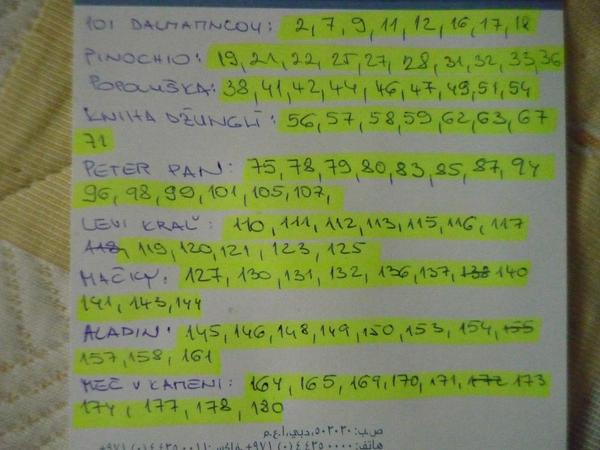 101 DALMATINCOV: 2, 7, 9, 11, 12, 16, 17, 18
PINOCHIO: 19, 21, 22, 25, 27, 28, 31, 32, 33, 36
POPOLUŠKA: 38, 41, 42, 44, 46, 47, 49, 51, 54
KNIHA DŽUNGLÍ: 56, 57, 58, 59, 62, 63, 67
71
PETER PAN: 75, 78, 79, 80, 83, 85, 87, 94
96, 98, 99, 101, 105, 107,
LEVI KRÁĽ: 110, 111, 112, 113, 115, 116, 117
118, 119, 120, 121, 123, 125
MAČKY: 127, 130, 131, 132, 136, 137, 138 140
141, 143, 144
ALADIN: 145, 146, 148, 149, 150, 153, 154, 155
157, 158, 161
MEČ V KAMENI: 164, 165, 169, 170, 171, 172 173
174, 177, 178, 180
ص.ب: ٥٠٢٠٣٠، دبي، أ.ع.م